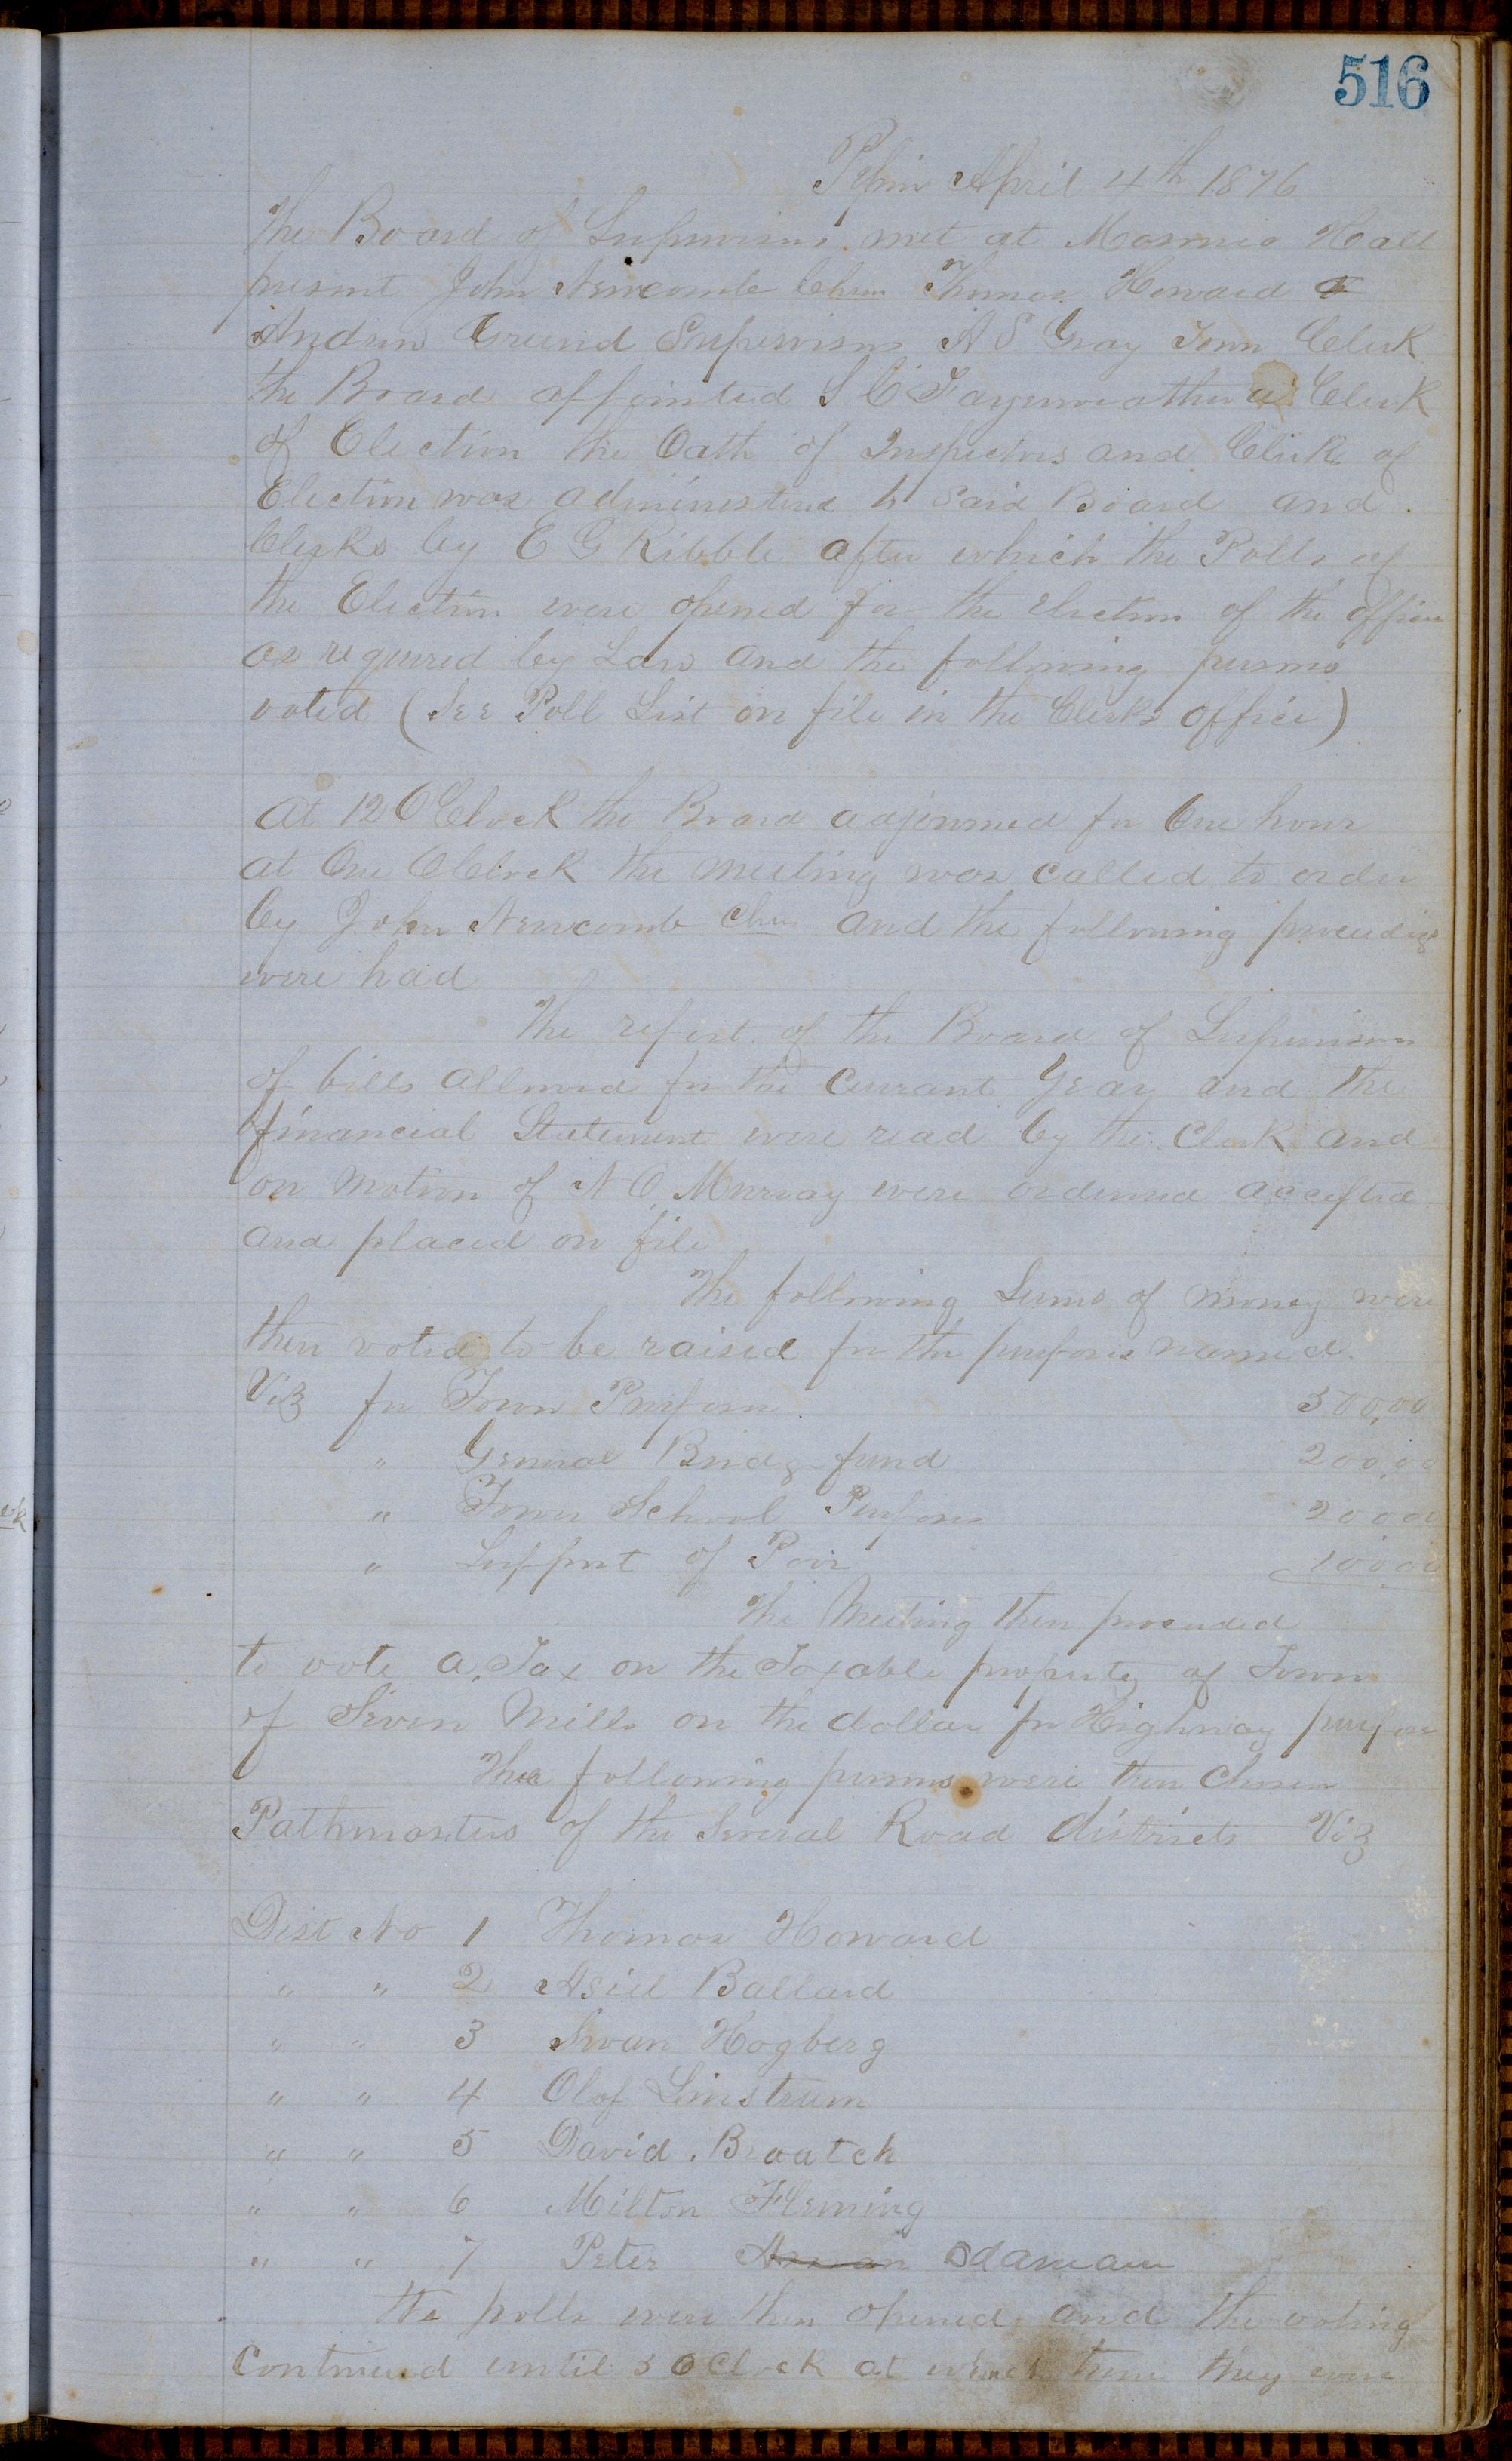 516
Pepin April 4th 1876
The Board of Supervisors met at Masonic Hall
present John Newcomb Chrm Thomas Howard &
Andrew Grund Supervisors A S Gray Town Clerk
the Board appointed S C Fayerweather as Clerk
of Election the Oath of Inspectors and Clerks of
Election was administered to Said Board and
Clerks by E G Ribble after which the Polls of
the Election were opened for the Election of the officers
as required by Law and the following persons
voted (See Poll List on file in the Clerks office)
At 12 O Clock the Board adjourned for One hour
at One OClock the meeting was called to order
by John Newcomb Chm and the following proceedigs
were had
The report of the Board of Supervisors
of bills allowed for the Currant Year and the
financial Statement were read by the Clerk and
on motion of N O Murray were ordered accepted
and placed on file
The following Sums of money were
then voted to be raised for the purposes named.
Viz for Town Purposes 300,00
" General Bridg fund 200,00
" Town School Purposes 200 00
" Support of Poor 100,00
The Meeting then proceeded
to vote a Tax on the Taxable property of Town
of Seven Mills on the dollar for Highway purposes
The following persons were then Chosen
Pathmasters of the Several Road districts Viz
Dist No 1 Thomas Howard
" " 2 Asiel Ballard
" " 3 Swan Hogberg
" " 4 Olof Linstrum
" " 5 David Braatch
" " 6 Milton Fleming
" " 7 Peter
the polls were then opened and the voting
Continued until 5 O Clock at which time they were